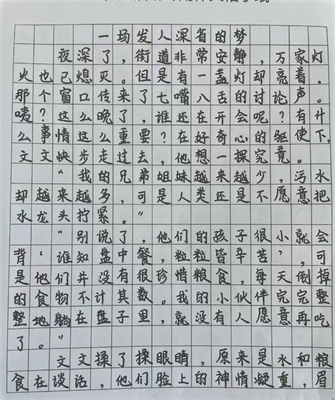 一场发人深省的梦
夜深了，街道非常安静，万家灯
火也已熄灭。但是有一盏灯却亮着。
那个窗口传来了七嘴八舌的讨论声。
咦？这么晚了，谁还在开会呢？有什
么事情这么重要？在好奇心的驱使下，
文文快步走过去，他想一探究竟。
“我的兄弟姐妹越来越少，污水
却越来越多，可是人类还是不愿意把
水龙头拧紧。”
“别说了，他们的孩子很小就会
背‘谁知盘中餐，粒粒皆辛苦’，可
是他们并没有很珍惜粮食，每天倒掉
的食物不计其数。我的小伙伴完完整
整地躺在盘子里，就没有人愿意再吃
了。”
文文揉了揉眼睛，原来是水和粮
食在谈话，他们脸上的神情凝重，眉